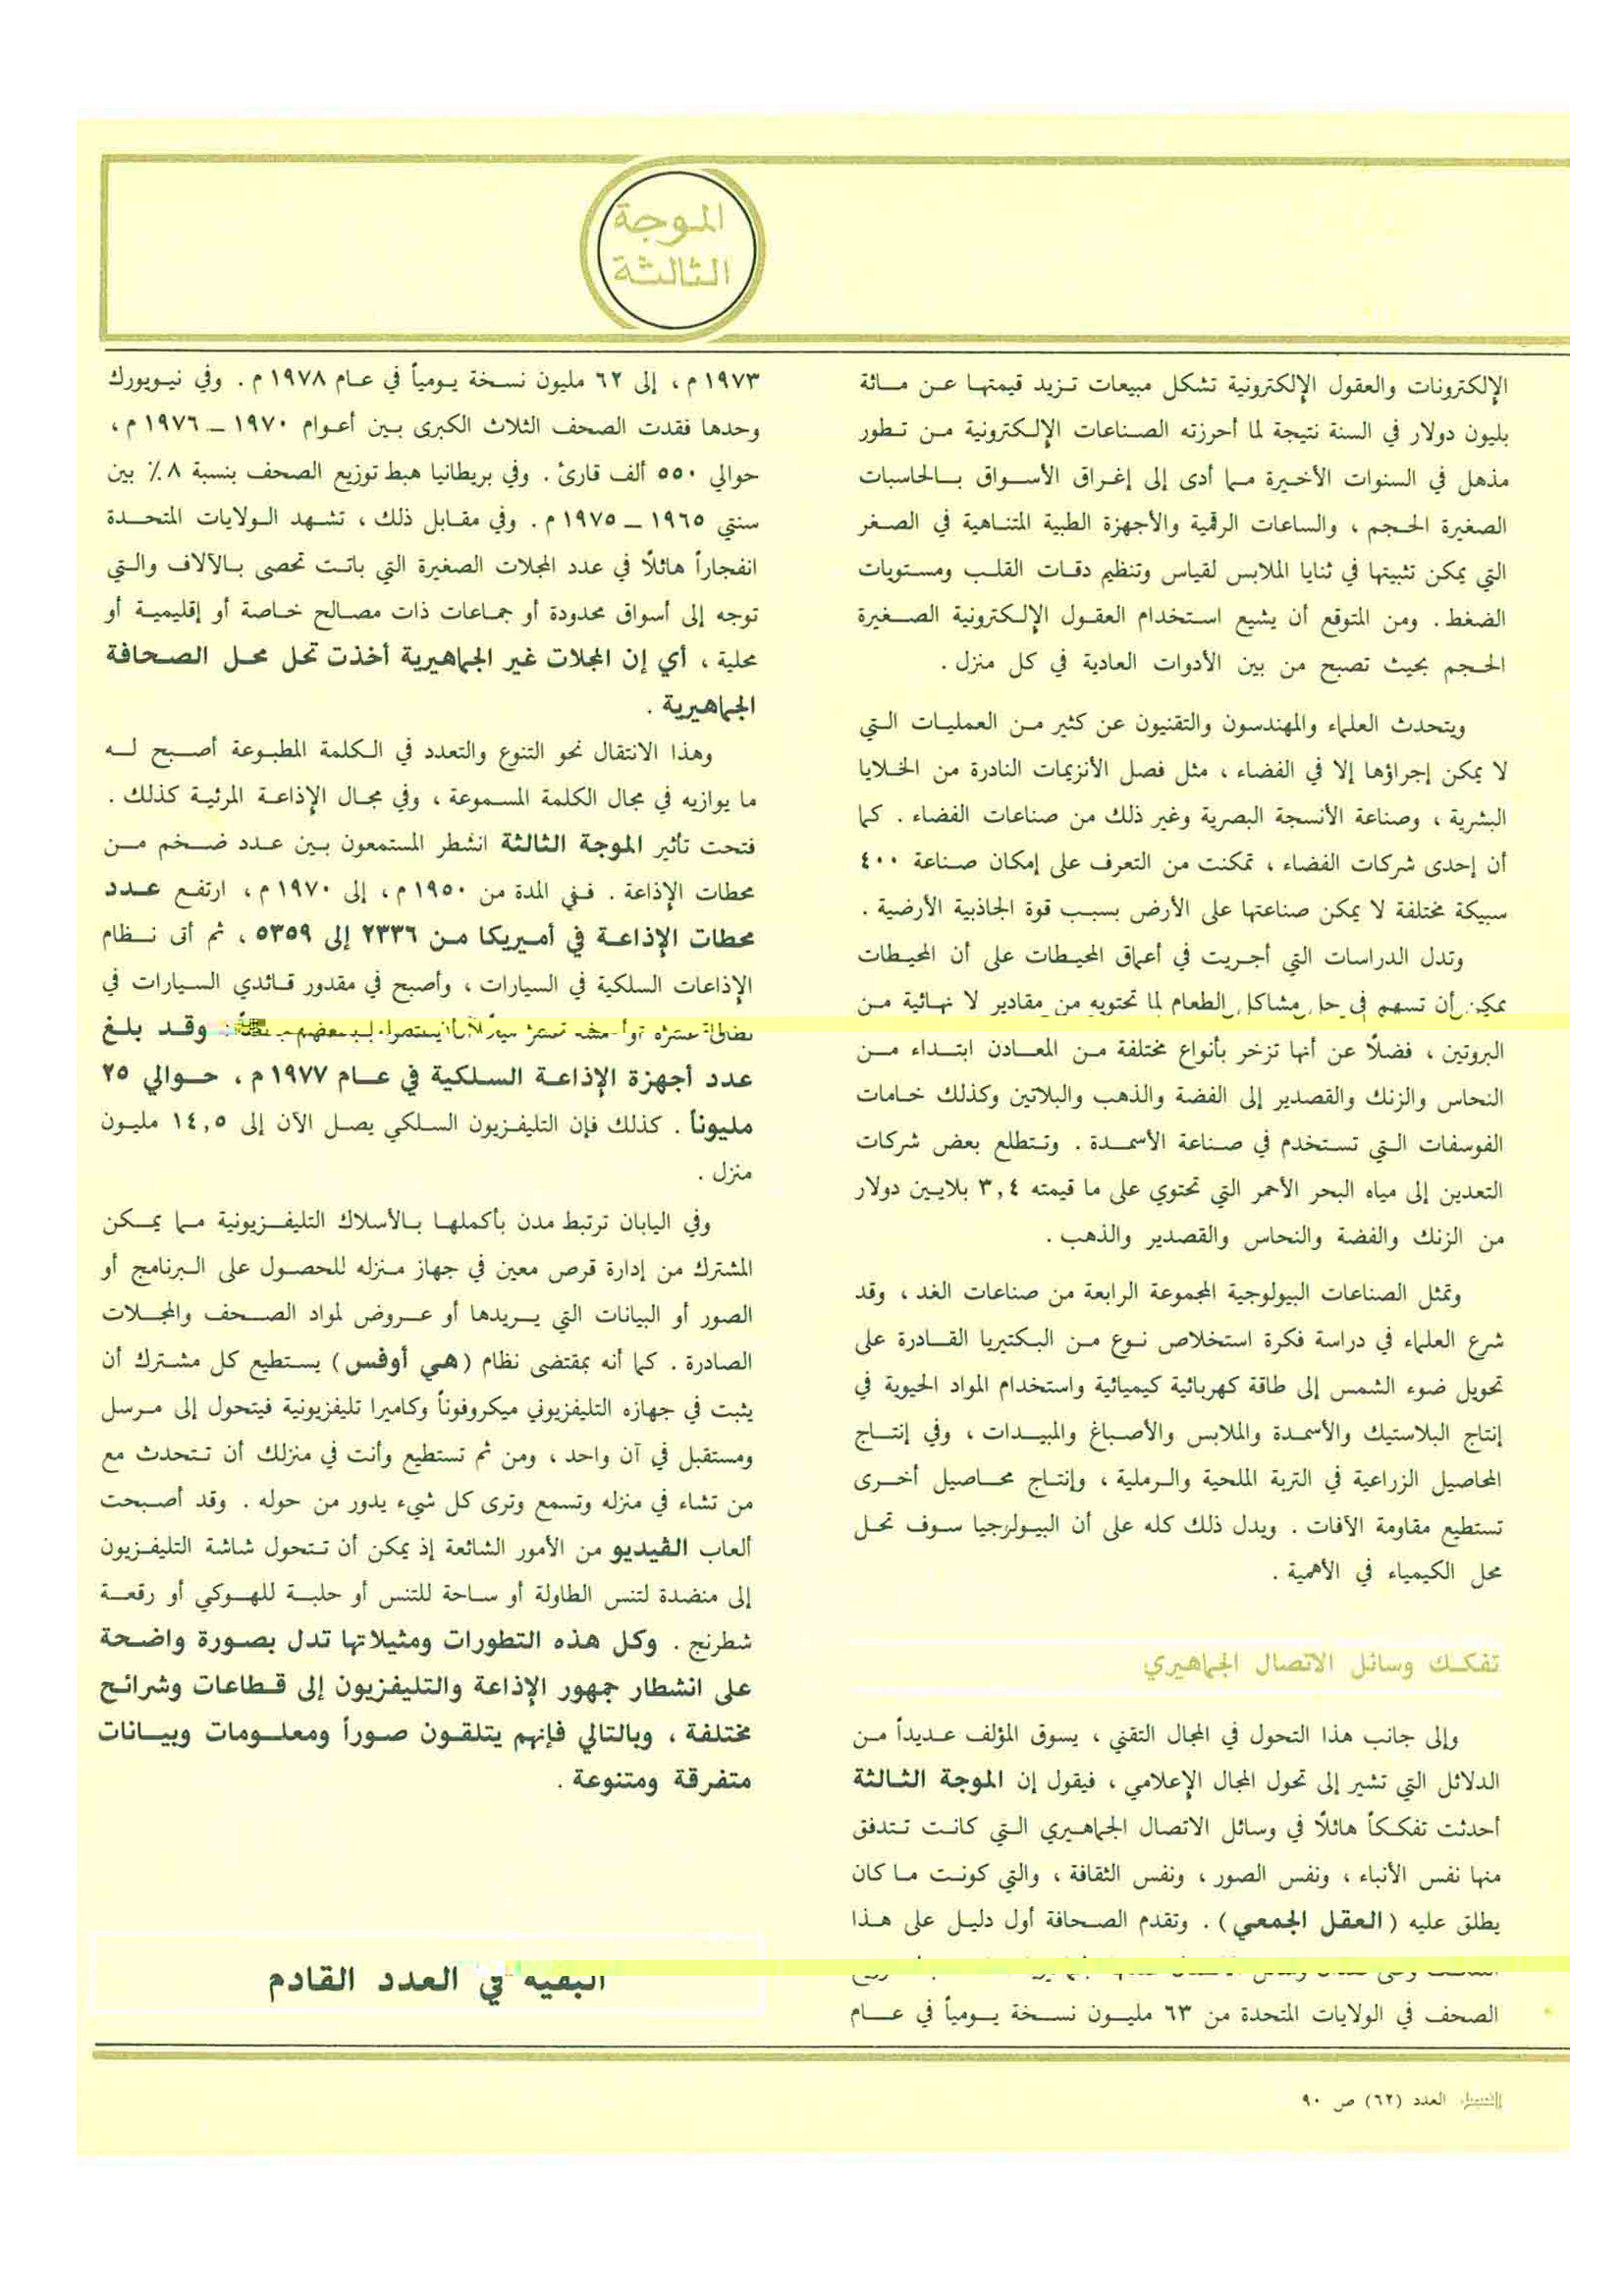 الموجة
الثالثة
الإلكترونات والعقول الإلكترونية تشكل مبيعات تزيد قيمتها عن مائة
بليون دولار في السنة نتيجة لما أحرزته الصناعات الإلكترونية من تطور
مذهل في السنوات الأخيرة مما أدى إلى إغراق الأسواق بالحاسبات
الصغيرة الحجم ، والساعات الرقمية والأجهزة الطبية المتناهية في الصغر
التي يمكن تثبيتها في ثنايا الملابس لقياس وتنظيم دقات القلب ومستويات
الضغط . ومن المتوقع أن يشيع استخدام العقول الإلكترونية الصغيرة
الحجم بحيث تصبح من بين الأدوات العادية في كل منزل .
ويتحدث العلماء والمهندسون والتقنيون عن كثير من العمليات التي
لا يمكن إجراؤها إلا في الفضاء ، مثل فصل الأنزيمات النادرة من الخلايا
البشرية ، وصناعة الأنسجة البصرية وغير ذلك من صناعات الفضاء . كما
أن إحدى شركات الفضاء ، تمكنت من التعرف على إمكان صناعة ٤٠٠
سبيكة مختلفة لا يمكن صناعتها على الأرض بسبب قوة الجاذبية الأرضية .
وتدل الدراسات التي أجريت في أعماق المحيطات على أن المحيطات
يمكن أن تسهم في حل مشاكل الطعام لما تحتويه من مقادير لا نهائية من
البروتين ، فضلًا عن أنها تزخر بأنواع مختلفة من المعادن ابتداء من
النحاس والزنك والقصدير إلى الفضة والذهب والبلاتين وكذلك خامات
الفوسفات التي تستخدم في صناعة الأسمدة . وتتطلع بعض شركات
التعدين إلى مياه البحر الأحمر التي تحتوي على ما قيمته ٣,٤ بلايين دولار
من الزنك والفضة والنحاس والقصدير والذهب .
وتمثل الصناعات البيولوجية المجموعة الرابعة من صناعات الغد ، وقد
شرع العلماء في دراسة فكرة استخلاص نوع من البكتيريا القادرة على
تحويل ضوء الشمس إلى طاقة كهربائية كيميائية واستخدام المواد الحيوية في
إنتاج البلاستيك والأسمدة والملابس والأصباغ والمبيدات ، وفي إنتاج
المحاصيل الزراعية في التربة الملحية والرملية ، وإنتاج محاصيل أخرى
تستطيع مقاومة الآفات . ويدل ذلك كله على أن البيولوجيا سوف تحل
محل الكيمياء في الأهمية .
تفكك وسائل الاتصال الجماهيري
وإلى جانب هذا التحول في المجال التقني ، يسوق المؤلف عديداً من
الدلائل التي تشير إلى تحول المجال الإعلامي ، فيقول إن الموجة الثالثة
أحدثت تفككاً هائلًا في وسائل الاتصال الجماهيري التي كانت تتدفق
منها نفس الأنباء ، ونفس الصور ، ونفس الثقافة ، والتي كونت ما كان
يطلق عليه ( العقل الجمعي ) . وتقدم الصحافة أول دليل على هذا
الصحف في الولايات المتحدة من ٦٣ مليون نسخة يومياً في عام
١٩٧٣ م ، إلى ٦٢ مليون نسخة يومياً في عام ١٩٧٨ م . وفي نيويورك
وحدها فقدت الصحف الثلاث الكبرى بين أعوام ١٩٧٠ ــ ١٩٧٦ م ،
حوالي ٥٥٠ ألف قارئ . وفي بريطانيا هبط توزيع الصحف بنسبة ٨٪ بين
سنتي ١٩٦٥ ــ ١٩٧٥ م . وفي مقابل ذلك ، تشهد الولايات المتحدة
انفجاراً هائلًا في عدد المجلات الصغيرة التي باتت تحصى بالآلاف والتي
توجه إلى أسواق محدودة أو جماعات ذات مصالح خاصة أو إقليمية أو
محلية ، أي إن المجلات غير الجماهيرية أخذت تحل محل الصحافة
الجماهيرية .
وهذا الانتقال نحو التنوع والتعدد في الكلمة المطبوعة أصبح له
ما يوازيه في مجال الكلمة المسموعة ، وفي مجال الإذاعة المرئية كذلك .
فتحت تأثير الموجة الثالثة انشطر المستمعون بين عدد ضخم من
محطات الإذاعة . ففي المدة من ١٩٥٠ م ، إلى ١٩٧٠ م ، ارتفع عدد
محطات الإذاعة في أمريكا من ٢٣٣٦ إلى ٥٣٥٩ ، ثم أتى نظام
الإذاعات السلكية في السيارات ، وأصبح في مقدور قائدي السيارات في
وقد بلغ
عدد أجهزة الإذاعة السلكية في عام ١٩٧٧ م ، حوالي ٢٥
مليوناً . كذلك فإن التليفزيون السلكي يصل الآن إلى ١٤,٥ مليون
منزل .
وفي اليابان ترتبط مدن بأكملها بالأسلاك التليفزيونية مما يمكن
المشترك من إدارة قرص معين في جهاز منزله للحصول على البرنامج أو
الصور أو البيانات التي يريدها أو عروض لمواد الصحف والمجلات
الصادرة . كما أنه بمقتضى نظام ( هي أوفس ) يستطيع كل مشترك أن
يثبت في جهازه التليفزيوني ميكروفوناً وكاميرا تليفزيونية فيتحول إلى مرسل
ومستقبل في آن واحد ، ومن ثم تستطيع وأنت في منزلك أن تتحدث مع
من تشاء في منزله وتسمع وترى كل شيء يدور من حوله . وقد أصبحت
ألعاب الڤيديو من الأمور الشائعة إذ يمكن أن تتحول شاشة التليفزيون
إلى منضدة لتنس الطاولة أو ساحة للتنس أو حلبة للهوكي أو رقعة
شطرنج . وكل هذه التطورات ومثيلاتها تدل بصورة واضحة
على انشطار جمهور الإذاعة والتليفزيون إلى قطاعات وشرائح
مختلفة ، وبالتالي فإنهم يتلقون صوراً ومعلومات وبيانات
متفرقة ومتنوعة .
البقية في العدد القادم
العدد (٦٢) ص ٩٠